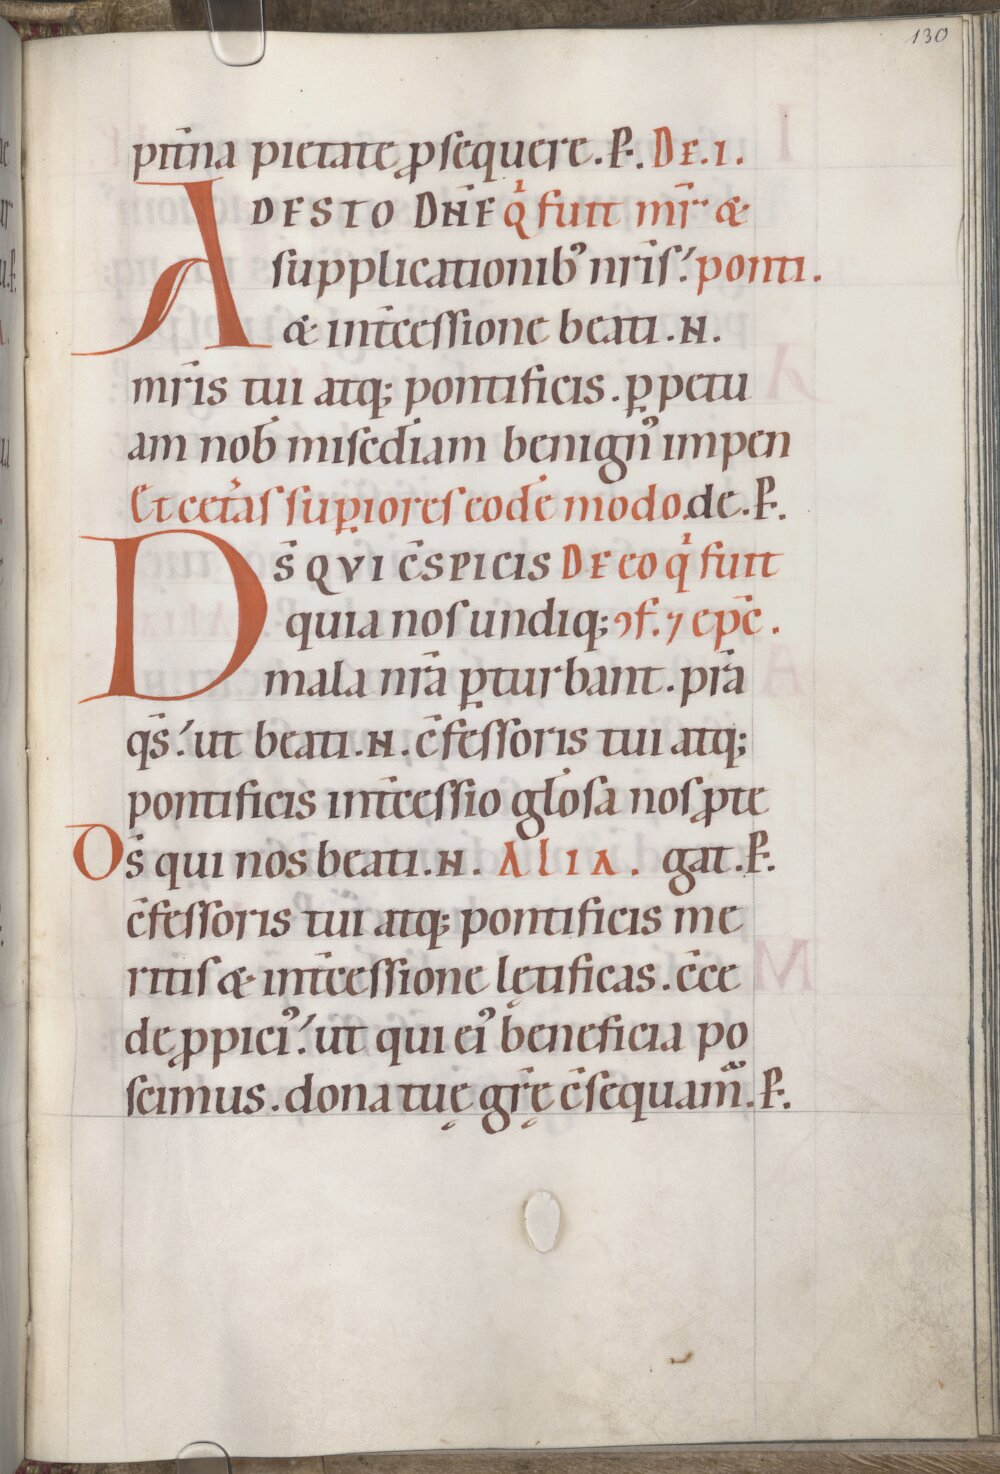 130
pet̄na pietate ꝓsequere. P̶. DE .I.
ADESTO DN̄E q̇ fuit mr̄ &
supplicationib' nr̄is. ponti.
& int̄cessione beati .N.
mr̄is tui atq; pontificis. ꝑpetu
am nob̄ misēdiam benign' impen
Et cet̄as suꝑiores eodē modo. de. P̶.
DS̄ QVI C̄SPICIS DE eo q̇ fuit
quia nos undiq; ꝯf. ⁊ ep̄c.
mala nr̄a ꝑturbant. pr̄a
qs̄. ut beati .N. c̄fessoris tui atq;
pontificis int̄cessio gl̄osa nos ꝓte
Ds̄ qui nos beati .N. ALIA. gat. P̶.
c̄fessoris tui atq; pontificis me
ritis & int̄cessione lętificas. c̄ce
de ꝓpici'. ut qui ei' beneficia po
scimus. dona tuę gr̄ę c̄sequam̄. P̶.